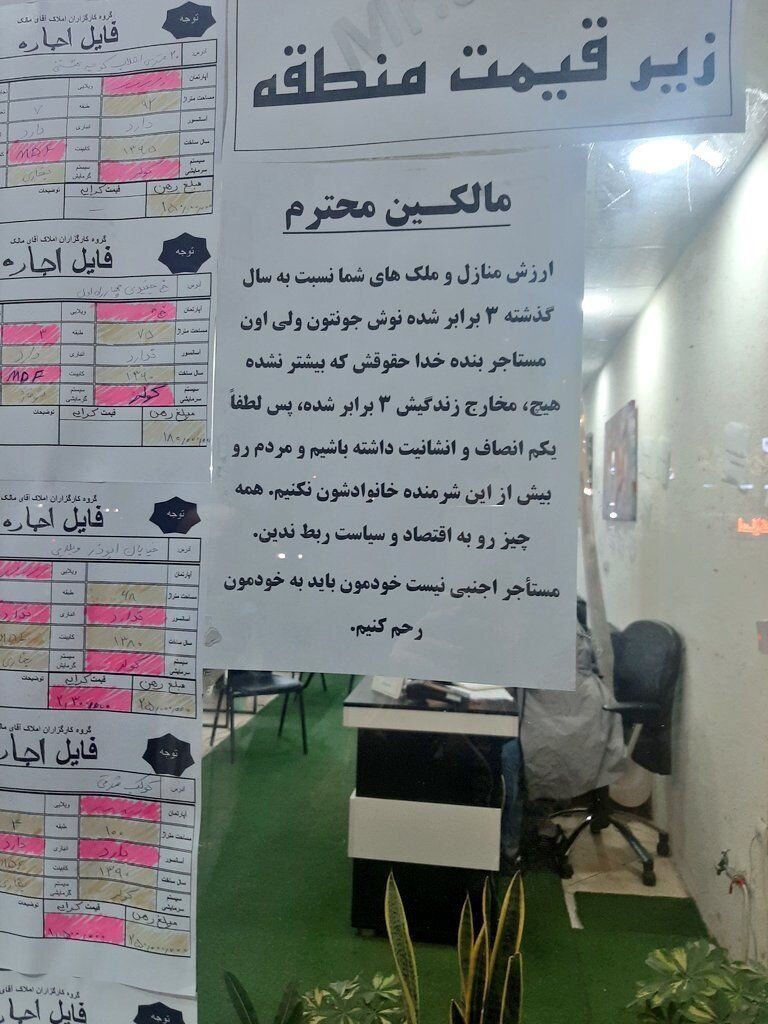 زیر قیمت منطقه
مالکین محترم
ارزش منازل و ملک های شما نسبت به سال
گذشته ۳ برابر شده نوش جونتون ولی اون
مستاجر بنده خدا حقوقش که بیشتر نشده
هیچ، مخارج زندگیش ۳ برابر شده، پس لطفاً
یکم انصاف و انشانیت داشته باشیم و مردم رو
بیش از این شرمنده خانوادشون نکنیم. همه
چیز رو به اقتصاد و سیاست ربط ندین.
مستأجر اجنبی نیست خودمون باید به خودمون
رحم کنیم.
توجه
گروه کارگزاران املاک آقای مالک
فایل اجاره
آدرس
آپارتمان ویلایی
مساحت متراژ ۹۲ طبقه ۷
آسانسور دارد انباری دارد
سال ساخت ۱۳۹۵ کابینت MDF
سیستم سرمایشی کولر سیستم گرمایش بخاری
مبلغ رهن قیمت کرایه توضیحات
توجه
گروه کارگزاران املاک آقای مالک
فایل اجاره
آدرس
آپارتمان ویلایی
مساحت متراژ ۷۵ طبقه ۳
آسانسور ندارد انباری دارد
سال ساخت ۱۳۹۰ کابینت MDF
سیستم سرمایشی کولر سیستم گرمایش
مبلغ رهن قیمت کرایه توضیحات
توجه
گروه کارگزاران املاک آقای مالک
فایل اجاره
آدرس خیابان ابوذر
آپارتمان ویلایی
مساحت متراژ ۶۸ طبقه
آسانسور ندارد انباری ندارد
سال ساخت ۱۳۸۰ کابینت MDF
سیستم سرمایشی کولر سیستم گرمایش بخاری
مبلغ رهن قیمت کرایه توضیحات
توجه
گروه کارگزاران املاک آقای مالک
فایل اجاره
آدرس کوکب شرقی
آپارتمان ویلایی
مساحت متراژ ۱۰۰ طبقه ۳
آسانسور دارد انباری دارد
سال ساخت ۱۳۹۰ کابینت MDF
سیستم سرمایشی کولر سیستم گرمایش بخاری
مبلغ رهن قیمت کرایه توضیحات
توجه
گروه کارگزاران املاک آقای مالک
فایل اجاره